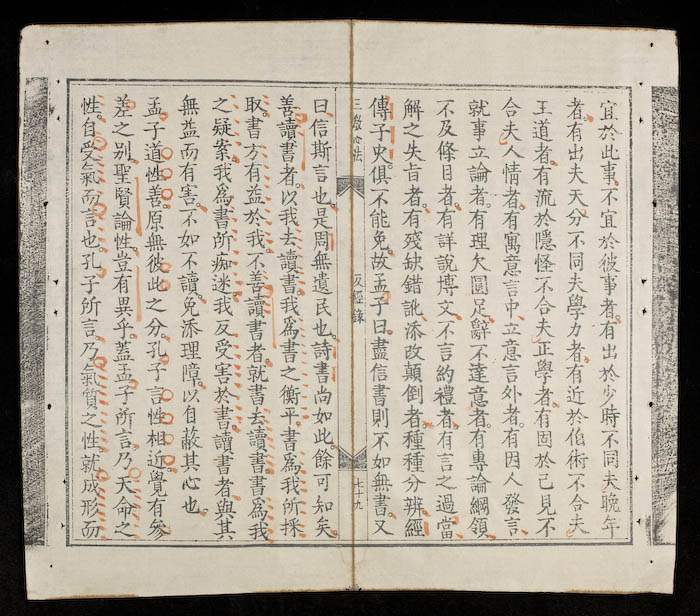 宜於此事不宜於彼事者有出於少時不同夫晚年
者有出夫天分不同夫學力者有近於伯術不合夫
王道者有流於隱怪不合夫正學者有固於己見不
合夫人情者有寓意言中立意言外者有因人發言
就事立論者有理欠圓足辭不達意者有專論綱領
不及條目者有詳說博文不言約禮者有言之過當
解之失旨者有殘缺錯訛添改顛倒者種種分辨經
傳子史俱不能免故孟子曰盡信書則不如無書又
三教心法
反經錄
七十九
曰信斯言也是周無遺民也詩書尚如此餘可知矣
善讀書者以我去讀書我為書之衡平書為我所採
取書方有益於我不善讀書者就書去讀書書為我
之疑案我為書所痴迷我反受害於書讀書者與其
無益而有害不如不讀免添理障以自蔽其心也
孟子道性善原無彼此之分孔子言性相近覺有參
差之別聖賢論性豈有異乎蓋孟子所言乃天命之
性自受氣而言也孔子所言乃氣質之性就成形而